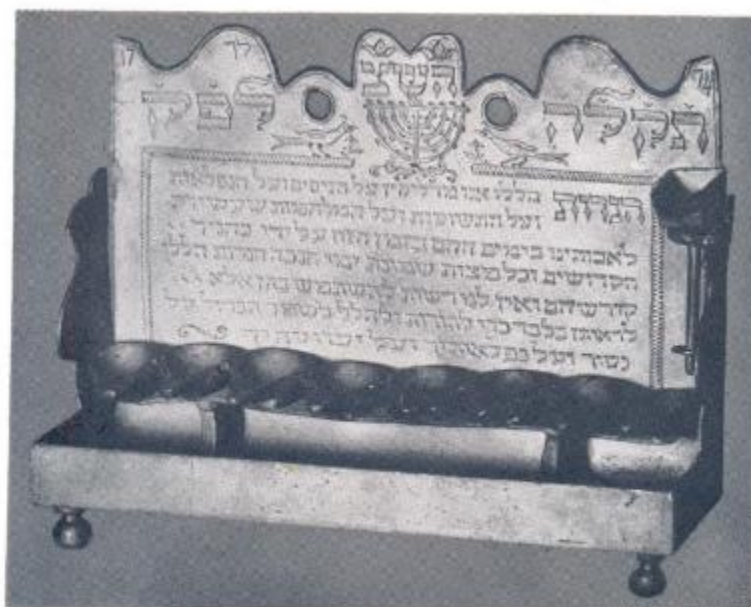 לך
לפק
הנרות הללו אנו מדליקין על הניסים ועל הנפלאות
ועל התשועות ועל המלחמות שעשית
לאבותינו בימים ההם ובזמן הזה על ידי כהניך
הקדושים וכל מצות שמונת ימי חנכה הנרות הללו
קודש הם ואין לנו רשות להשתמש בהן אלא
לראותן בלבד כדי להודות ולהלל לשמך הגדול על
נסיך ועל נפלאותיך ועל ישועותיך